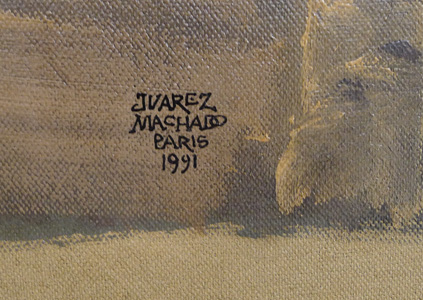 JUAREZ
MACHADO
PARIS
1991